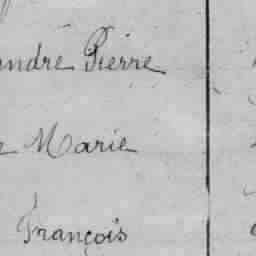 André Pierre
Marie
François